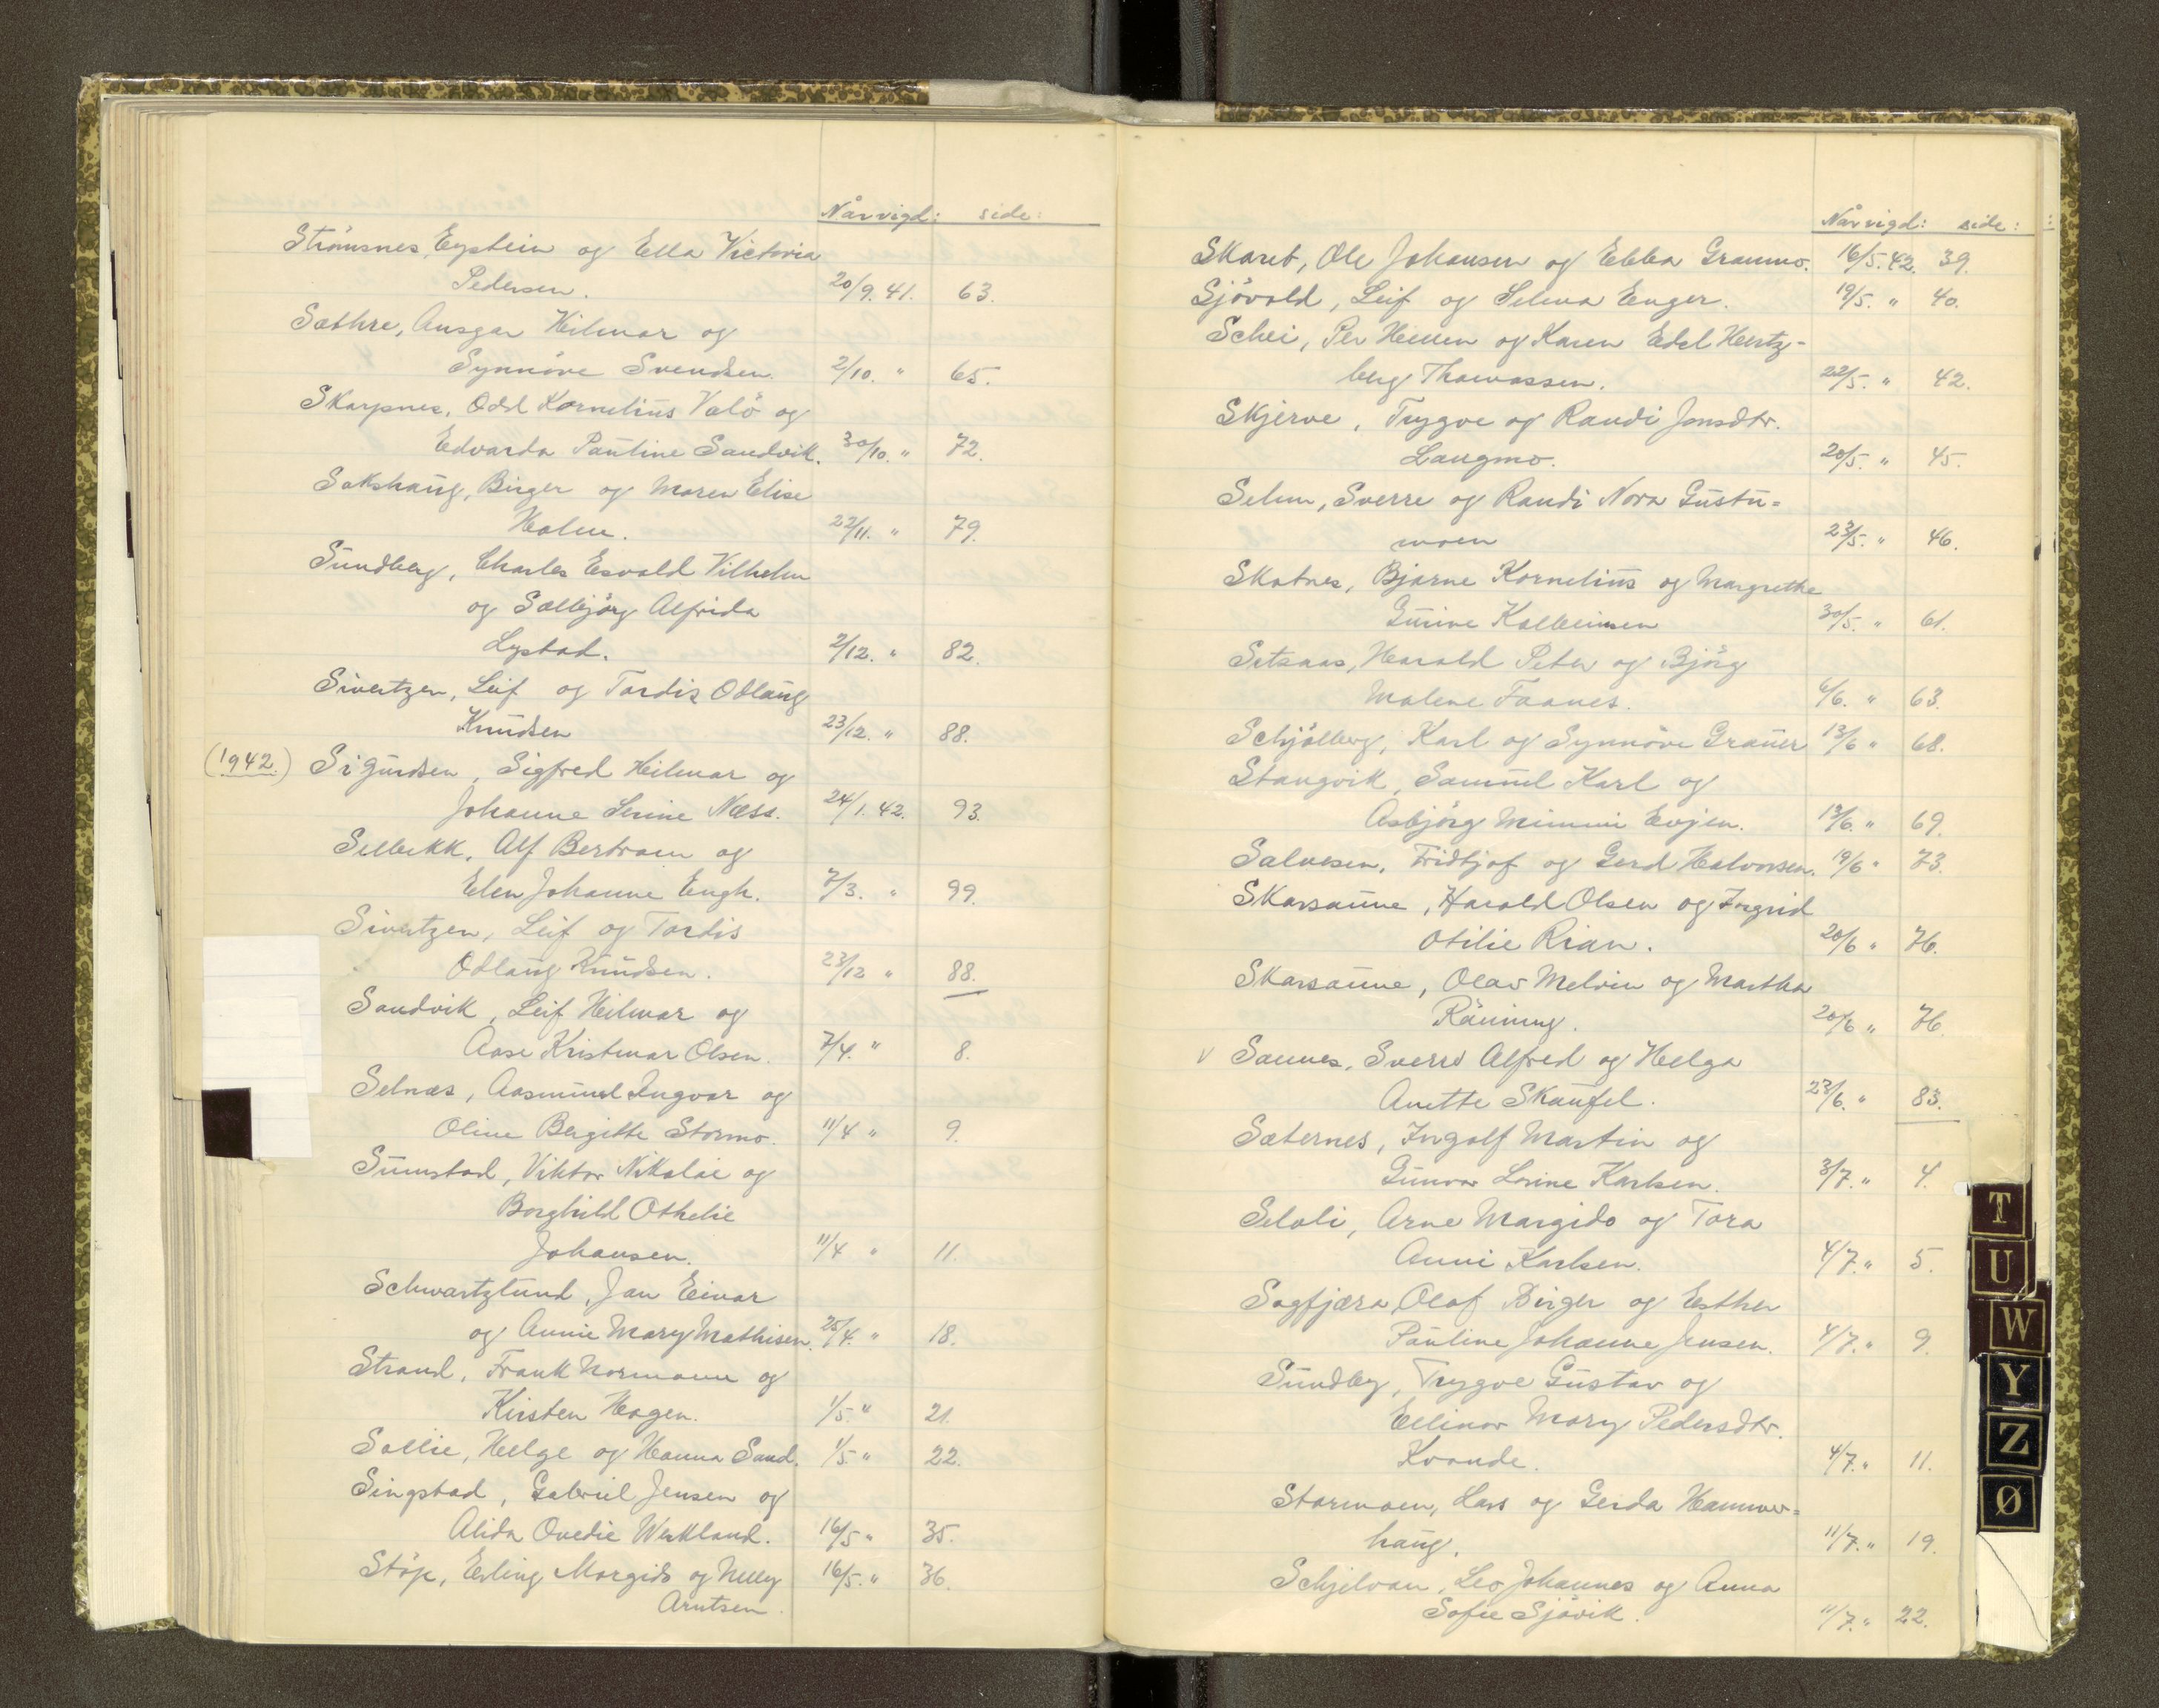 Når vigd: side:
Strömsnes, Eystein og Ella Victoria
Pedersen. 20/9. 41. 63.
Sæthre, Ansgar Hilmar og
Synnöve Svendsen. 2/10. " 65.
Skarpnes, Odd Kornelius Valö og
Edvarda Pauline Sandvik. 30/10. " 72.
Sakshaug, Birger og Maren Elise
Holm. 22/11. " 79.
Sundberg, Charles Esvald Vilhelm
og Solbjörg Alfrida
Lystad. 2/12. " 82.
Sivertzen, Leif og Tordis Odlaug
Knudsen 23/12. " 88.
(1942.) Sigurdsen, Sigfred Hilmar og
Johanne Serine Næss. 24/1. 42. 93.
Selbekk, Alf Bertram og
Elen Johanne Engh. 7/3. " 99.
Sivertzen, Leif og Tordis
Odlaug Knudsen. 23/12 " 88.
Sandvik, Leif Hilmar og
Aase Kristmar Olsen. 7/4. " 8.
Selnæs, Aasmund Ingvar og
Oline Bergitte Stormo. 11/4 " 9.
Sumstad, Viktor Nikolai og
Borghild Othelie
Johansen. 11/4 " 11.
Schwartzlund, Jan Einar
og Annie Mary Mathisen. 25/4. " 18.
Strand, Frank Normann og
Kirsten Hagen. 1/5. " 21.
Sollie, Helge og Hanna Sand. 1/5 " 22.
Singstad, Gabriel Jensen og
Alida Ovedie Werkland. 16/5 " 35.
Støp, Erling Margido og Nelly 16/5. " 36.
Arntsen.
Når vigd: side:
Skaret, Ole Johansen og Ebba Granmo. 16/5. 42. 39.
Sjövold, Leif og Selma Enger. 19/5. " 40.
Schei, Per Hellem og Karen Edel Hertz-
berg Thomassen. 22/5. " 42.
Skjerve, Trygve og Randi Jonsdtr.
Langmo. 20/5. " 45.
Selm, Sverre og Randi Nora Gustu=
moen 23/5. " 46.
Skatnes, Bjarne Kornelius og Margrethe
Gurine Kolbeinsen 30/5. " 61.
Setsaas, Harald Peter og Björg
Malene Faanes. 6/6. " 63.
Schjölberg, Karl og Synnöve Grauer 13/6 " 68.
Stangvik, Samuel Karl og
Asbjörg Mimmi Evjen. 13/6. " 69.
Salvesen, Fridtjof og Gerd Halvorsen. 19/6 " 73.
Skarsaune, Harald Olsen og Ingrid
Otilie Rian. 20/6 " 76.
Skarsaune, Olav Melvin og Martha
Räuning. 20/6 " 76.
v Sannes, Sverre Alfred og Helga
Anette Skaufel. 23/6. " 83.
Sæternes, Ingolf Martin og
Gunvor Lovine Karlsen. 3/7. " 4.
Seloli, Arne Margido og Tora
Anni Karlsen. 4/7. " 5.
Sagfjæra, Olaf Birger og Esther
Pauline Johanne Jensen. 4/7. " 9.
Sundby, Trygve Gustav og
Ellinor Mary Pedersdtr.
Kvande. 4/7. " 11.
Stormoen, Lars og Gerda Hammer=
haug. 11/7. " 19.
Schjelvan, Leo Johannes og Anna
Sofie Sjövik. 11/7. " 22.
T
U
W
Y
Z
Ø